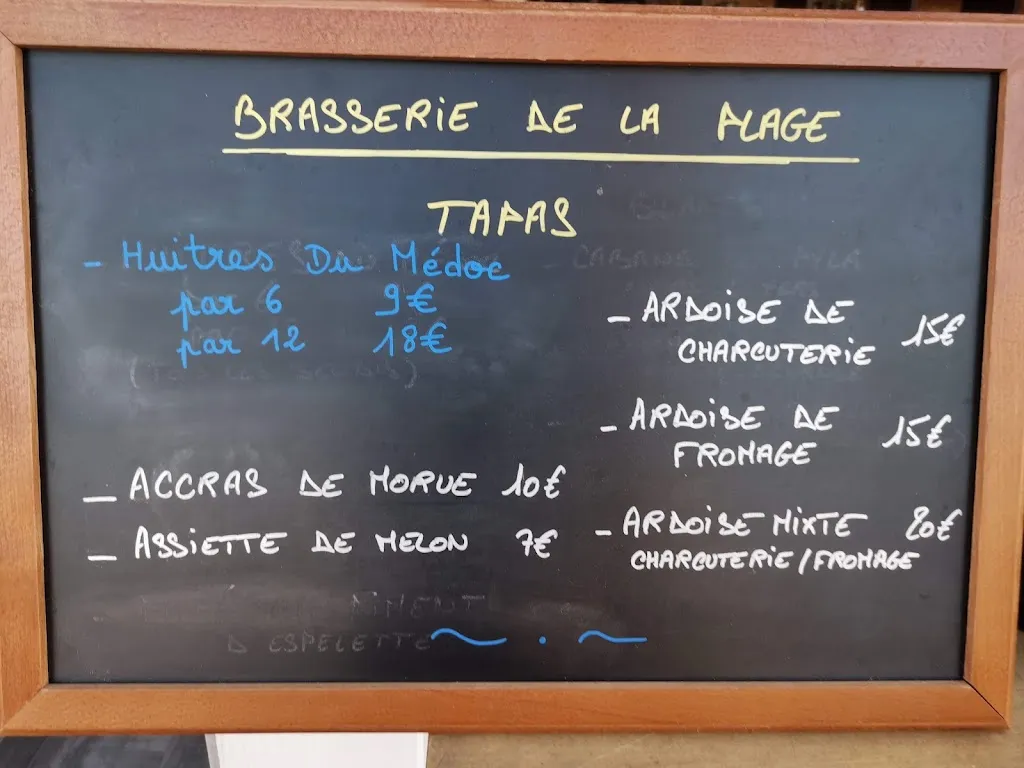 BRASSERIE DE LA PLAGE
TAPAS
- Huitres Du Médoc
par 6 9€
par 12 18€
- ACCRAS DE MORUE 10€
- ASSIETTE DE MELON 7€
PIMENT
D ESPELETTE
- ARDOISE DE
CHARCUTERIE 15€
- ARDOISE DE
FROMAGE 15€
- ARDOISE MIXTE 20€
CHARCUTERIE/FROMAGE